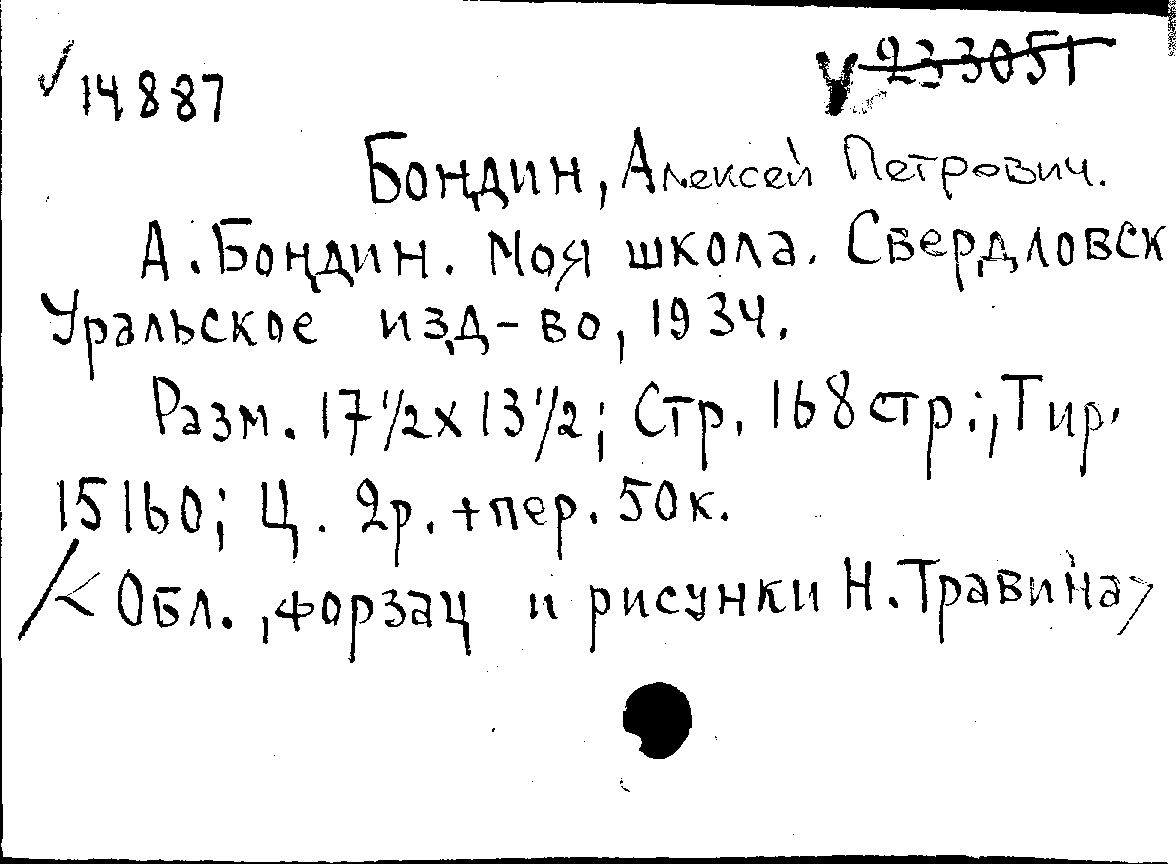 ✓ 14887
V 233051
Бондин, Алексей Петрович.
А. Бондин. Моя школа. Свердловск
Уральское изд-во, 1934.
Разм. 17 1/2 x 13 1/2; Стр. 168 стр.; Тир.
15160; Ц. 2р. + пер. 50к.
/< Обл., форзац и рисунки Н. Травина>